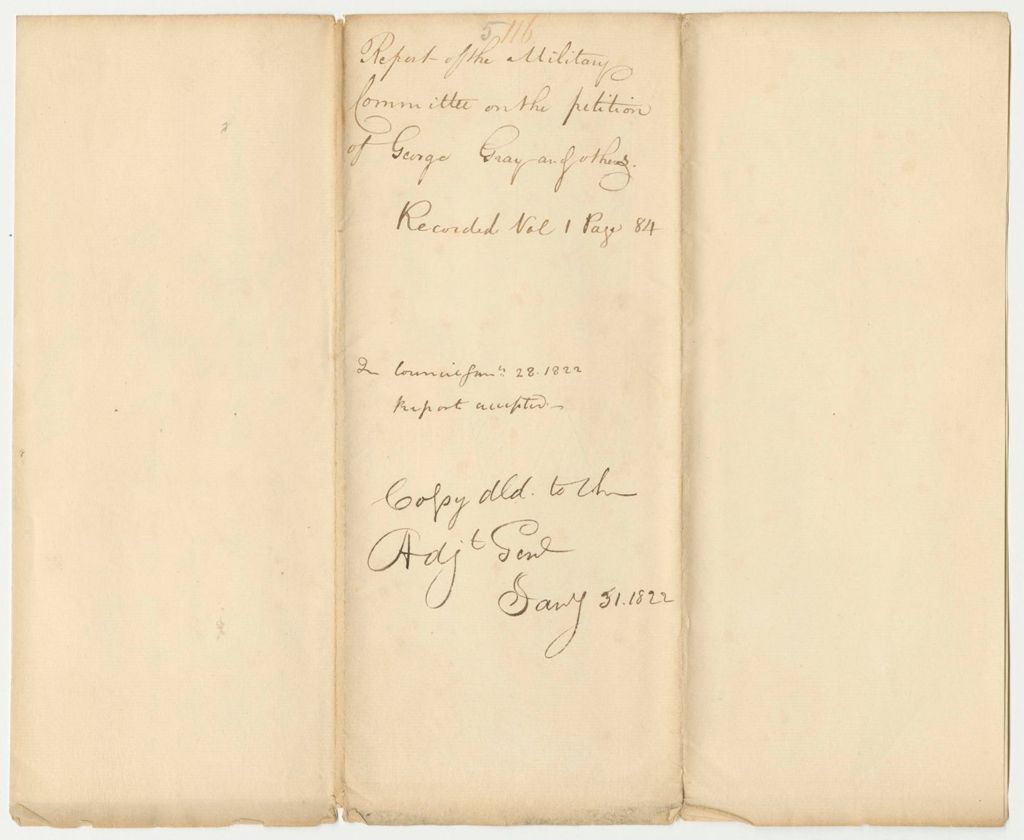 5 116
Report of the Military
Committee on the petition
of George Gray and others.
Recorded Vol 1 Page 84
In Council Jany. 28. 1822
Report accepted
Copy dld. to the
Adjt Genl
Jany 31. 1822